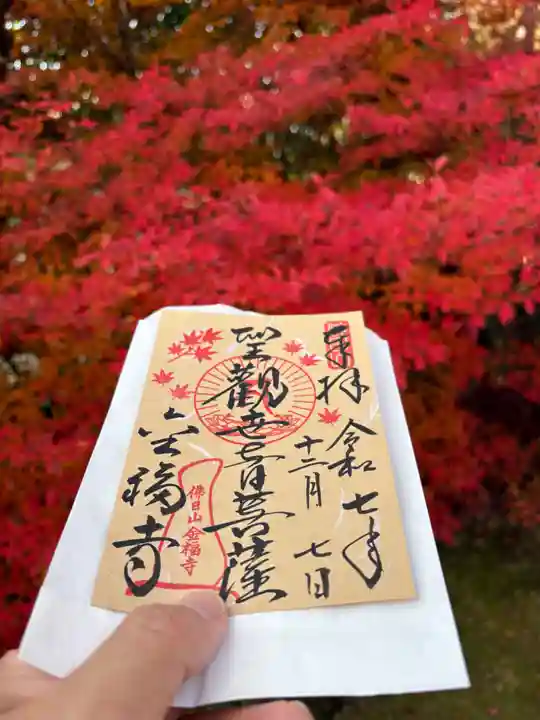 奉拝
令和七年
十二月七日
聖観世音菩薩
金福寺
佛日山金福寺